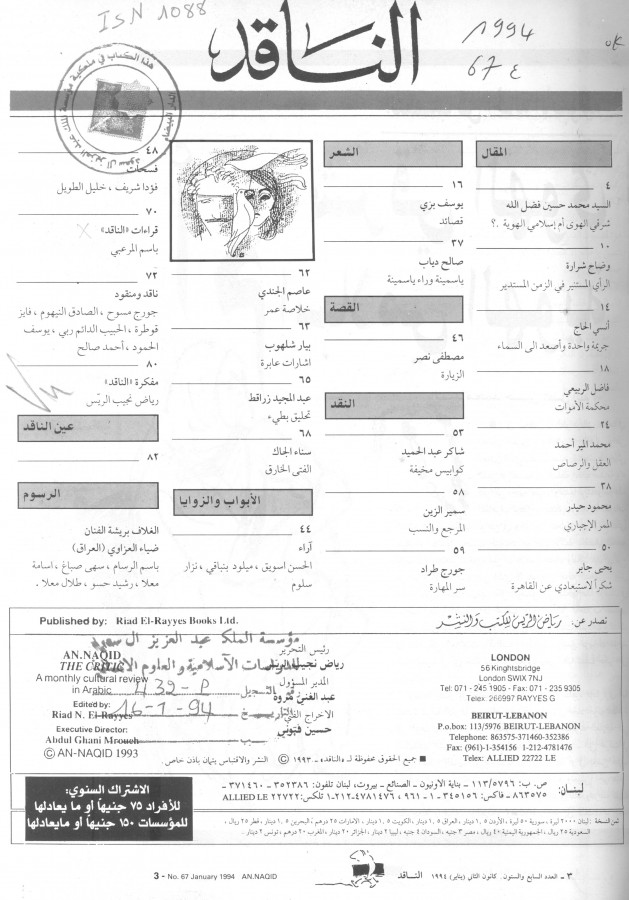 IsN 1088
1994
67 ع
ok
الناقد
المقال
٤
السيد محمد حسين فضل الله
شرقي الهوى أم إسلامي الهوية .؟
١٠
وضاح شرارة
الرأي المستنير في الزمن المستدير
١٤
أنسي الحاج
جريمة واحدة وأصعد الى السماء
١٨
فاضل الربيعي
محكمة الأموات
٢٤
محمد المير أحمد
العقل والرصاص
٣٨
محمود حيدر
الممر الإجباري
٥٠
يحيى جابر
شكراً لاستبعادي عن القاهرة
الشعر
١٦
يوسف بزي
قصائد
٣٧
صالح دياب
ياسمينة وراء ياسمينة
القصة
٤٦
مصطفى نصر
الزيارة
النقد
٥٣
شاكر عبد الحميد
كوابيس مخيفة
٥٨
سمير الزين
المرجع والنسب
٥٩
جورج طراد
سر المهارة
٦٢
عاصم الجندي
خلاصة عمر
٦٣
بيار شلهوب
اشارات عابرة
٦٥
عبد المجيد زراقط
تحليق بطيء
٦٨
سناء الجاك
الفتى الخارق
الأبواب والزوايا
٤٤
آراء
الحسن اسويق، ميلود بنباقي، نزار
سلوم
٤٨
فسحات
فؤدا شريف، خليل الطويل
٧٠
قراءات «الناقد»
باسم المرعبي
٧٢
ناقد ومنقود
جورج مسوح، الصادق النيهوم، فايز
قوطرة، الحبيب الدائم ربي، يوسف
الحمود، أحمد صالح
٨٠
مفكرة «الناقد»
رياض نجيب الريّس
عين الناقد
٨٢
الرسوم
الغلاف بريشة الفنان
ضياء العزاوي (العراق)
باسم الرسام، سهى صباغ، اسامة
معلا، رشيد حسو، طلال معلا.
تصدر عن: رياض الريس للكتب والنشر
Published by: Riad El-Rayyes Books Ltd.
LONDON
56 Knightsbridge
London SWIX 7NJ
Tel: 071 - 245 1905 - Fax: 071 - 235 9305
Telex: 266997 RAYYES G
BEIRUT-LEBANON
P.o.box: 113/5976 BEIRUT-LEBANON
Telephone: 863575-371460-352386
Fax: (961)-1-354156 1-212-4781476
Telex: ALLIED 22722 LE
رئيس التحرير
رياض نجيب الريس
المدير المسؤول
عبد الغني مروة
الاخراج الفني
حسين قبوس
مؤسسة الملك عبد العزيز آل سعود
للدراسات الاسلامية والعلوم الانسانية
التسجيل H 39 - P
16-1-94
AN.NAQID
THE CRITIC
A monthly cultural review
in Arabic
Edited by:
Riad N. El-Rayyes
Executive Director:
Abdul Ghani Mroueh
© AN-NAQID 1993
■ جميع الحقوق محفوظة لـ «الناقد» ١٩٩٣ © النشر والاقتباس ينهان باذن خاص.
لبنان: ص. ب: ١١٣/٥٧٩٦ - بناية الاونيون - الصنائع - بيروت، لبنان تلفون: ٣٥٢٣٨٦ - ٣٧١٤٦٠ -
٨٦٣٥٧٥ - فاكس: ٣٤٥١٥٦ - ١ - ٩٦١، ٤٧٨١٤٧٦-٢١٢-١ تلكس: ALLIED LE ٢٢٧٢٢
الاشتراك السنوي:
للأفراد ٧٥ جنيهاً أو ما يعادلها
للمؤسسات ١٥٠ جنيهاً أو مايعادلها
ثمن النسخة: لبنان ٢٠٠٠ ليرة، سورية ٥٠ ليرة، الأردن ١،٥ دينار، العراق ١،٥ دينار، الكويت ١،٥ دينار، الامارات ٢٥ درهم، البحرين ١،٥ دينار، قطر ٢٥ ريال،
السعودية ٢٥ ريال، الجمهورية اليمنية ٤٠ ريال، مصر ٣ جنيه، السودان ٤ جنيه، ليبيا ٢ دينار، الجزائر ٢٠ دينار، المغرب ٢٠ درهم، تونس ٢ دينار.
٣ - العدد السابع والستون. كانون الثاني (يناير) ١٩٩٤ الناقد
3 - No. 67 January 1994 AN.NAQID